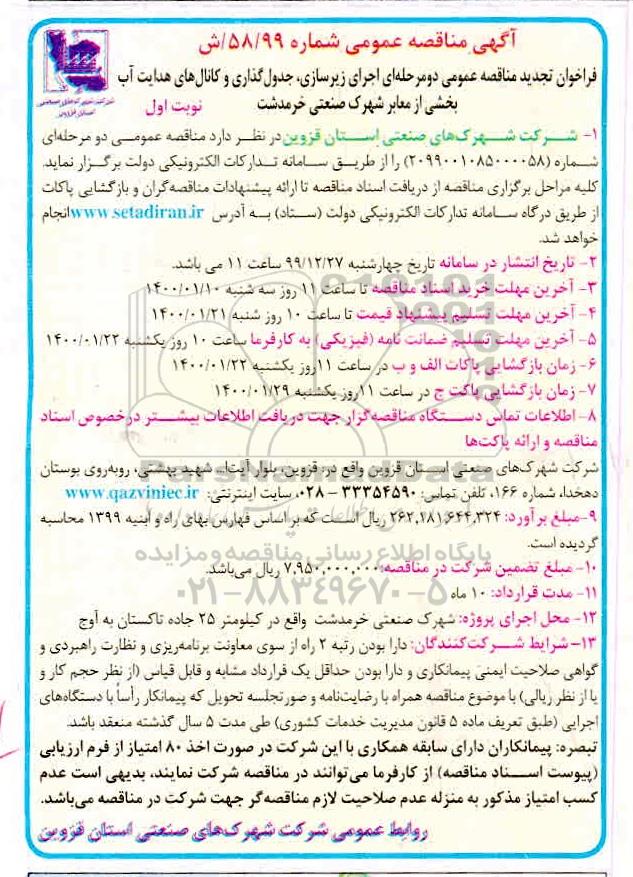 آگهی مناقصه عمومی شماره ۵۸/۹۹/ش
فراخوان تجدید مناقصه عمومی دومرحله‌ای اجرای زیرسازی، جدول‌گذاری و کانال‌های هدایت آب
بخشی از معابر شهرک صنعتی خرمدشت
نوبت اول
شرکت شهرک‌های صنعتی
استان قزوین
۱- شرکت شهرک‌های صنعتی استان قزوین در نظر دارد مناقصه عمومی دو مرحله‌ای
شماره (۲۰۹۹۰۰۱۰۸۵۰۰۰۰۵۸) را از طریق سامانه تدارکات الکترونیکی دولت برگزار نماید.
کلیه مراحل برگزاری مناقصه از دریافت اسناد مناقصه تا ارائه پیشنهادات مناقصه‌گران و بازگشایی پاکات
از طریق درگاه سامانه تدارکات الکترونیکی دولت (ستاد) به آدرس www.setadiran.ir انجام
خواهد شد.
۲- تاریخ انتشار در سامانه تاریخ چهارشنبه ۹۹/۱۲/۲۷ ساعت ۱۱ می باشد.
۳- آخرین مهلت خرید اسناد مناقصه تا ساعت ۱۱ روز سه شنبه ۱۴۰۰/۰۱/۱۰
۴- آخرین مهلت تسلیم پیشنهاد قیمت تا ساعت ۱۰ روز شنبه ۱۴۰۰/۰۱/۲۱
۵- آخرین مهلت تسلیم ضمانت نامه (فیزیکی) به کارفرما ساعت ۱۰ روز یکشنبه ۱۴۰۰/۰۱/۲۲
۶- زمان بازگشایی پاکات الف و ب در ساعت ۱۱روز یکشنبه ۱۴۰۰/۰۱/۲۲
۷- زمان بازگشایی پاکت ج در ساعت ۱۱روز یکشنبه ۱۴۰۰/۰۱/۲۹
۸- اطلاعات تماس دستگاه مناقصه‌گزار جهت دریافت اطلاعات بیشتر درخصوص اسناد
مناقصه و ارائه پاکت‌ها
شرکت شهرک‌های صنعتی استان قزوین واقع در: قزوین، بلوار آیت‌ا... شهید بهشتی، روبه‌روی بوستان
دهخدا، شماره ۱۶۶، تلفن تماس: ۳۳۳۵۴۵۹۰ - ۰۲۸، سایت اینترنتی: www.qazviniec.ir
۹-مبلغ برآورد: ۲۶۲,۲۸۱,۶۴۴,۳۲۴ ریال است که بر اساس فهارس بهای راه و ابنیه ۱۳۹۹ محاسبه
گردیده است.
پایگاه اطلاع رسانی مناقصه و مزایده
۱۰- مبلغ تضمین شرکت در مناقصه: ۷,۹۵۰,۰۰۰,۰۰۰ ریال می‌باشد.
۰۲۱-۸۸۳۴۹۶۷۰-۵
۱۱- مدت قرارداد: ۱۰ ماه
۱۲- محل اجرای پروژه: شهرک صنعتی خرمدشت واقع در کیلومتر ۲۵ جاده تاکستان به آوج
۱۳-شرایط شرکت‌کنندگان: دارا بودن رتبه ۲ راه از سوی معاونت برنامه‌ریزی و نظارت راهبردی و
گواهی صلاحیت ایمنی پیمانکاری و دارا بودن حداقل یک قرارداد مشابه و قابل قیاس (از نظر حجم کار و
یا از نظر ریالی) با موضوع مناقصه همراه با رضایت‌نامه و صورتجلسه تحویل که پیمانکار رأساً با دستگاه‌های
اجرایی (طبق تعریف ماده ۵ قانون مدیریت خدمات کشوری) طی مدت ۵ سال گذشته منعقد باشد.
تبصره: پیمانکاران دارای سابقه همکاری با این شرکت در صورت اخذ ۸۰ امتیاز از فرم ارزیابی
(پیوست اسناد مناقصه) از کارفرما می‌توانند در مناقصه شرکت نمایند، بدیهی است عدم
کسب امتیاز مذکور به منزله عدم صلاحیت لازم مناقصه‌گر جهت شرکت در مناقصه می‌باشد.
روابط عمومی شرکت شهرک‌های صنعتی استان قزوین